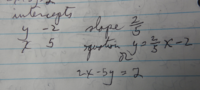 intercepts
y -2 slope 2/5
x 5 equation y = 2/5 x - 2
or
2x - 5y = 2